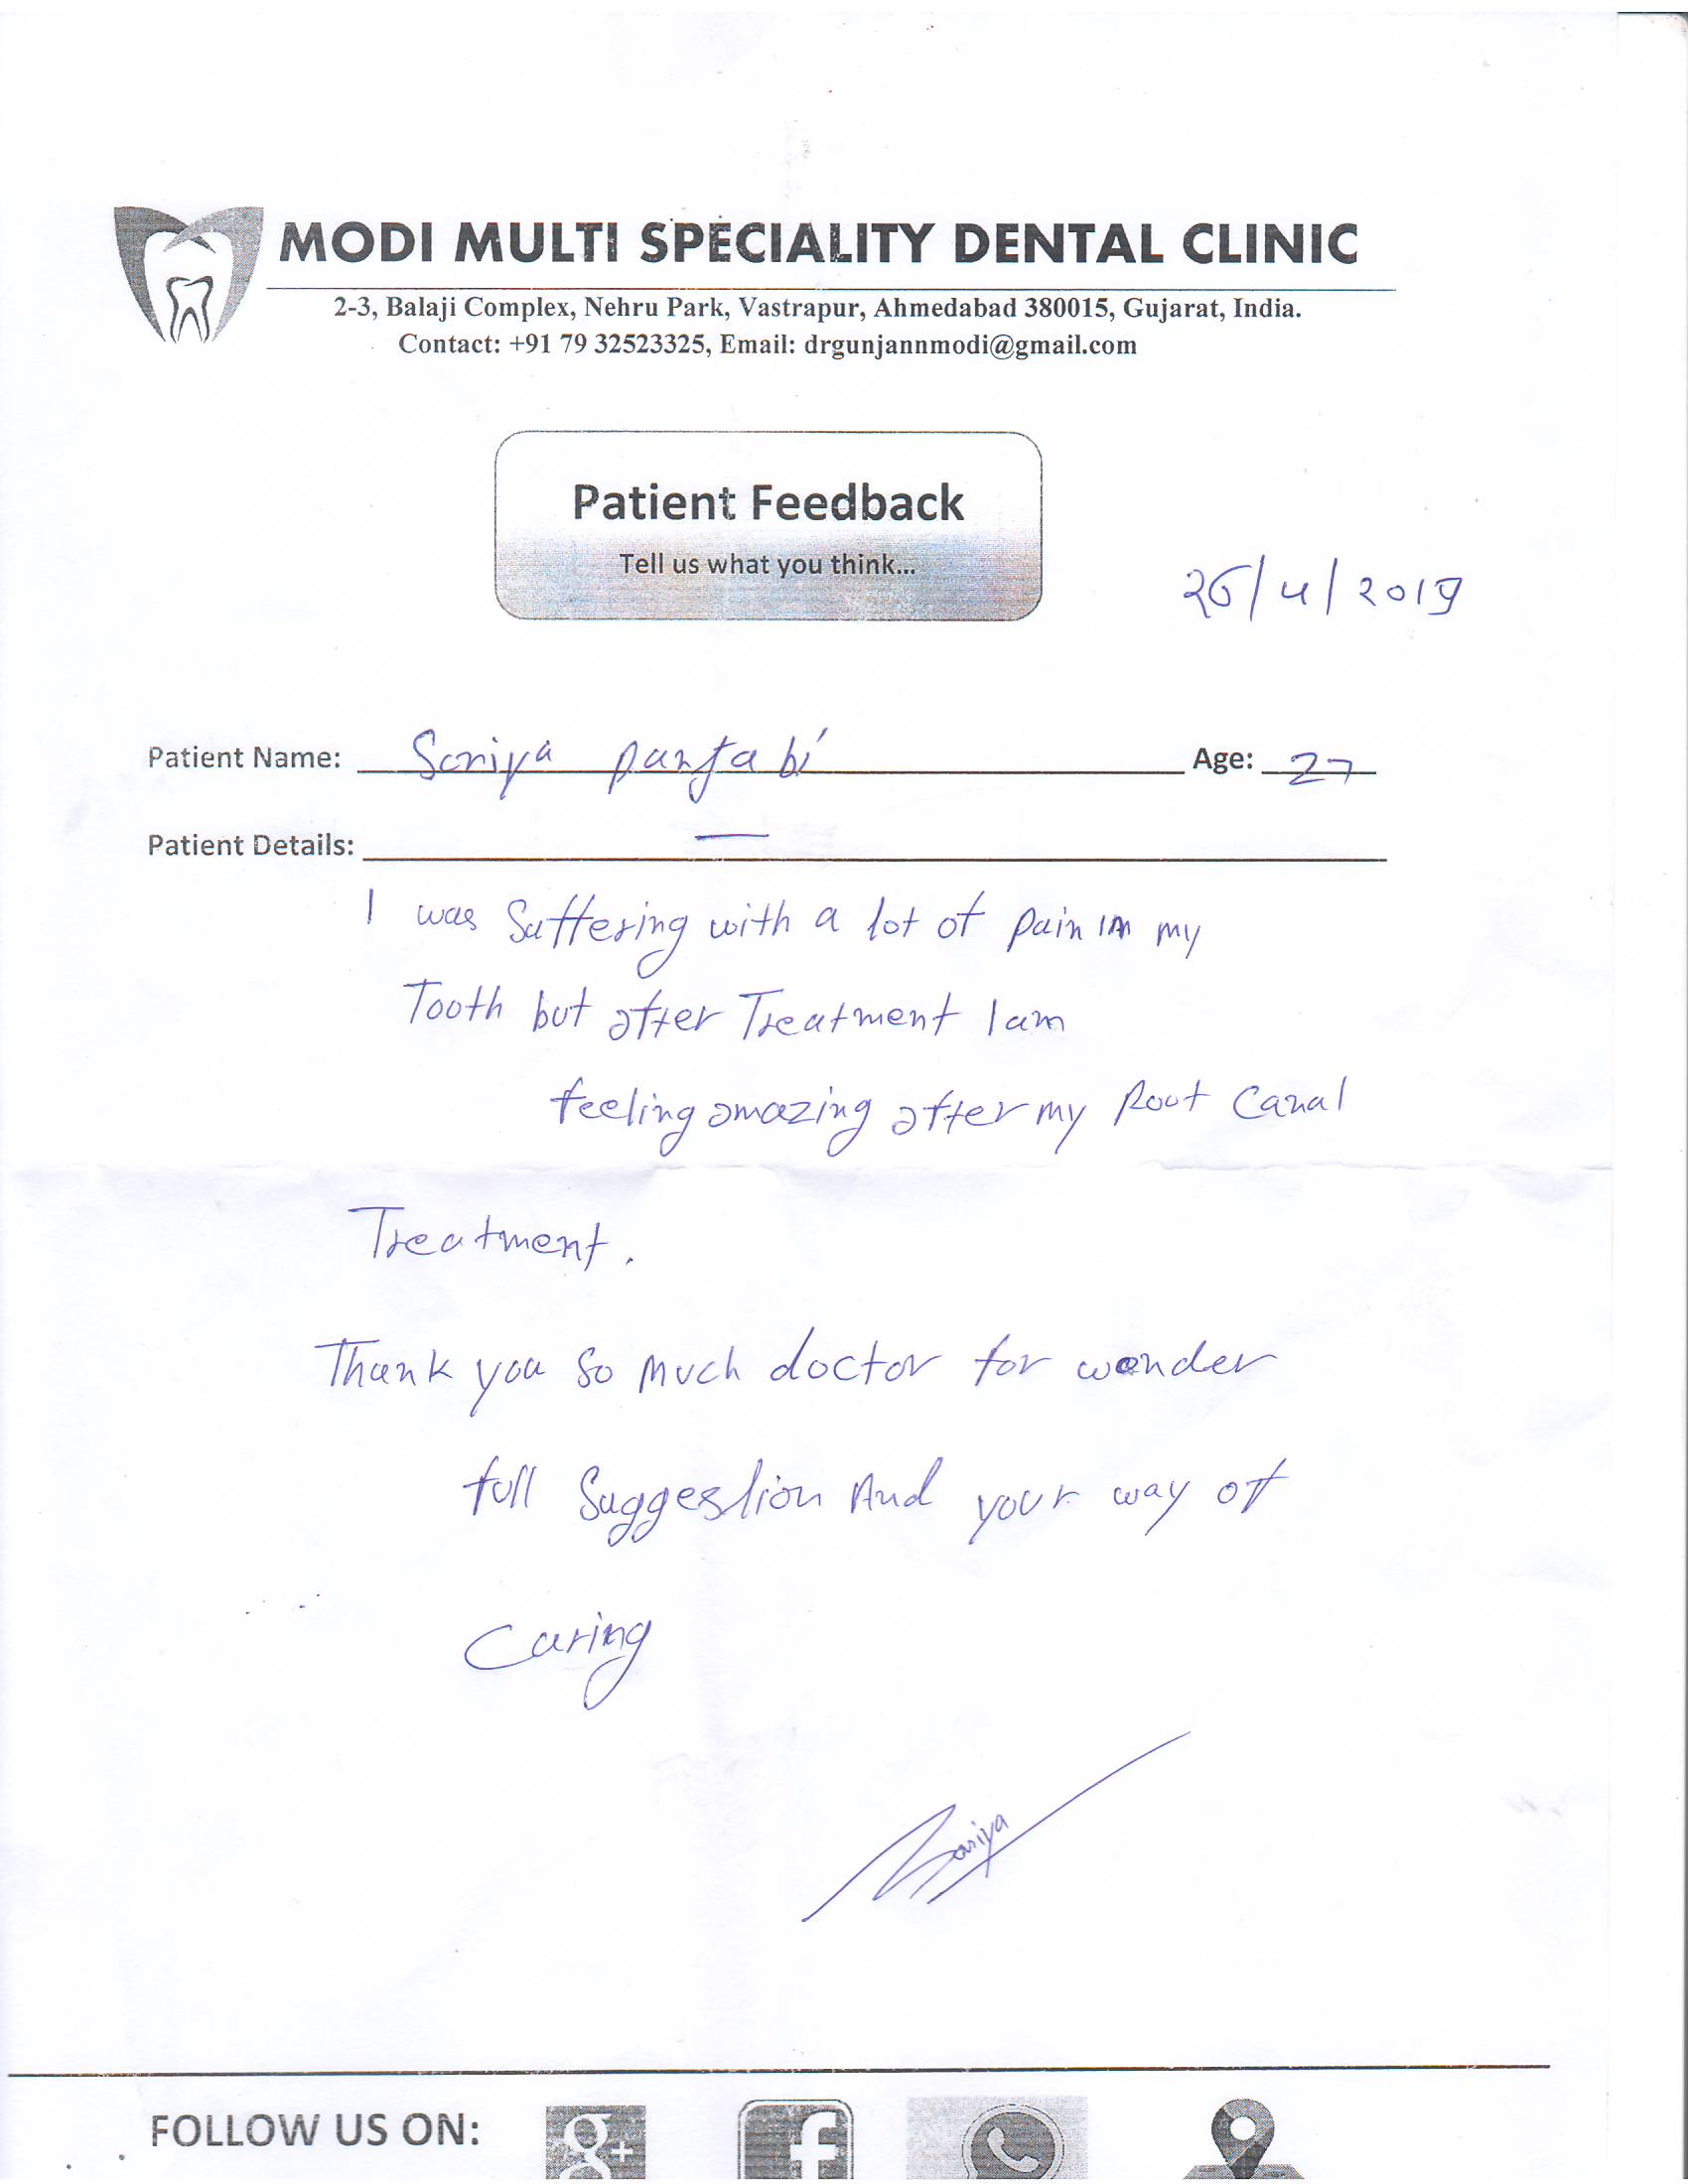 MODI MULTI SPECIALITY DENTAL CLINIC
2-3, Balaji Complex, Nehru Park, Vastrapur, Ahmedabad 380015, Gujarat, India.
Contact: +91 79 32523325, Email: drgunjannmodi@gmail.com
Patient Feedback
Tell us what you think...
26/4/2019
Patient Name: Soniya panjabi Age: 27
Patient Details: —
I was Suffering with a lot of Pain in my
Tooth but after Treatment I am
feeling amazing after my Root Canal
Treatment.
Thank you So Much doctor for wonder
full Suggestion And your way of
Caring
Soniya
FOLLOW US ON:
g+
f